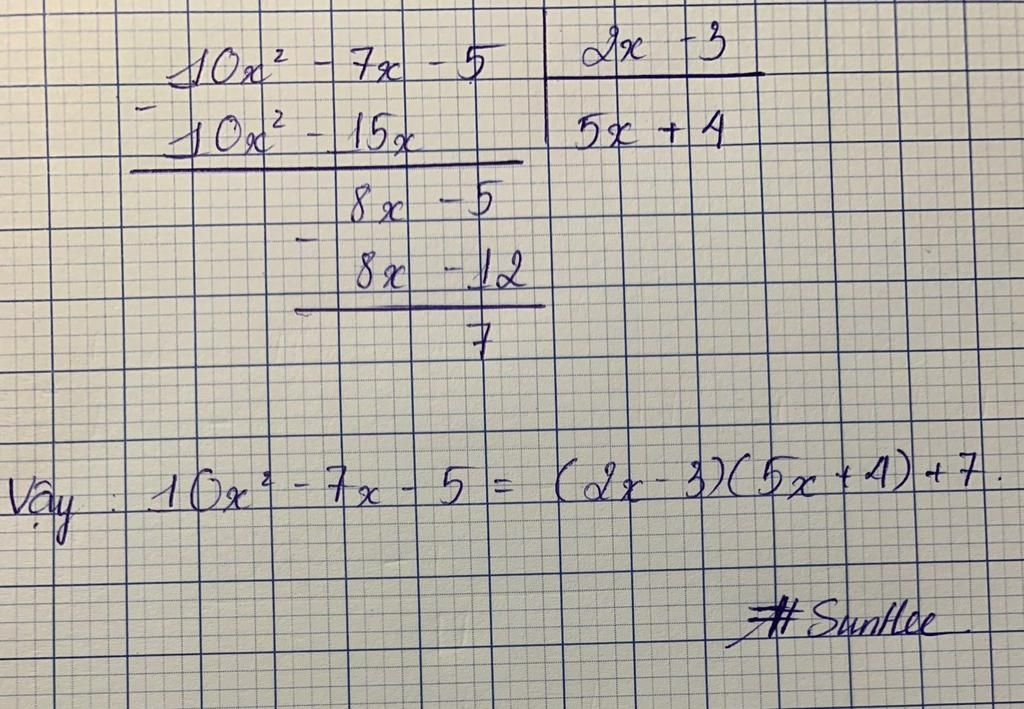 10x² - 7x - 5 | 2x - 3
- 10x² - 15x | 5x + 4
8x - 5
- 8x - 12
7
Vậy : 10x² - 7x - 5 = (2x - 3)(5x + 4) + 7.
# SunHee